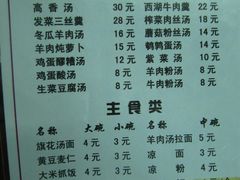 高香汤 30元 西湖牛肉羹 22元
发菜三丝羹 28元 榨菜肉丝汤 18元
冬瓜羊肉汤 22元 蘑菇粉丝汤 18元
羊肉炖萝卜 22元 鹌鹑蛋汤 18元
鸡蛋醪糟汤 12元 紫菜汤 12元
鸡蛋酸汤 8元 羊肉粉汤 8元
生菜豆腐汤 8元 牛肉粉汤 8元
主食类
名称 大碗 小碗 名称 中碗
旗花汤面 4元 3元 羊肉汤拉面 5元
黄豆麦仁 4元 3元 凉面 3元
大米抓饭 4元 3元 凉粉 3元